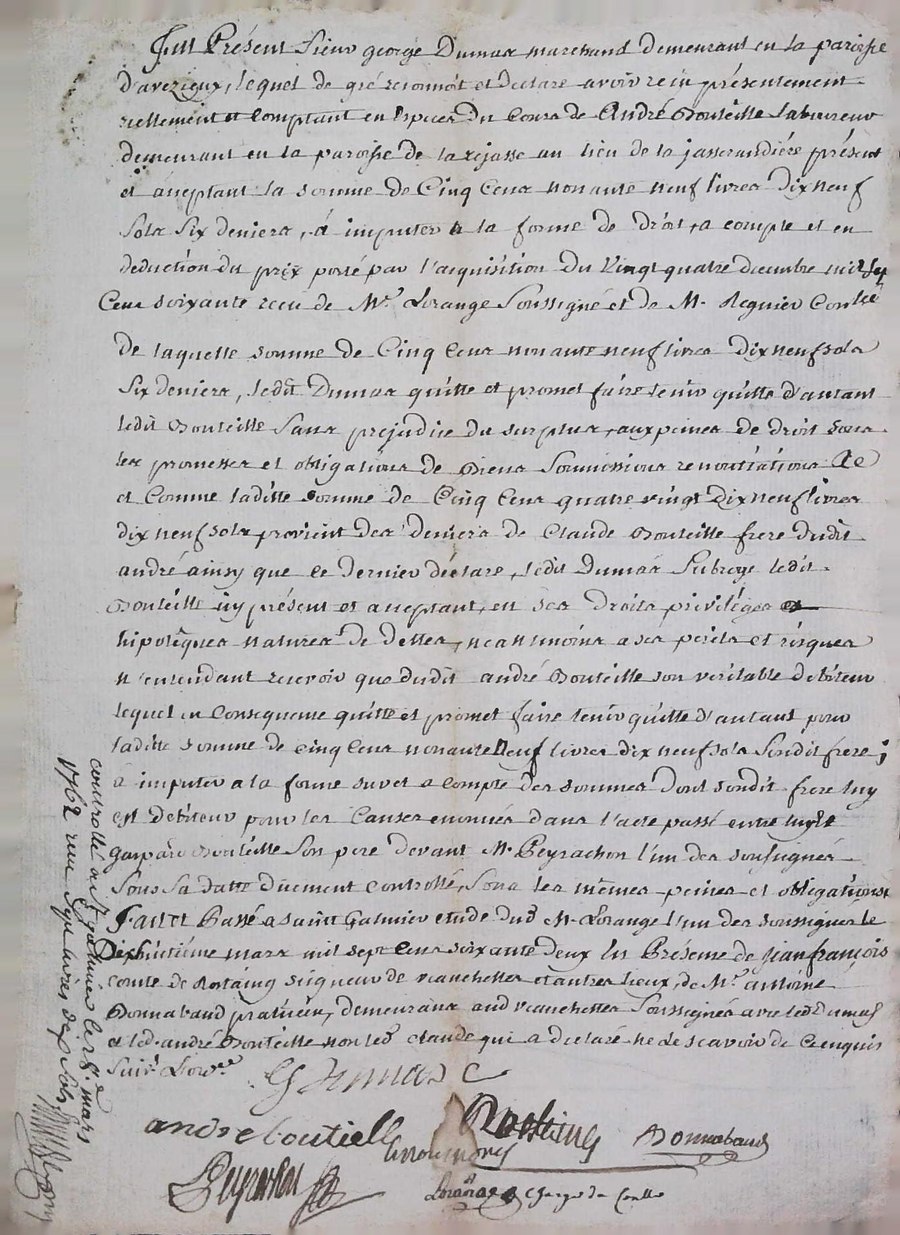 Futt Présent sieur george Dumas marchand demeurant en la paroisse
d'avezieux, lequel de gré reconnoit et declare avoir recu présentement
réellement et comptant en espèces du cours de André Bouteille laboureur
demeurant en la paroisse de la rajasse au lieu de la jasserandiére présent
et acceptant la somme de Cinq cens nonante neuf livres dix neuf
sols six deniers, à imputer a la forme de droit, a compte et en
deduction du prix porté par l'acquisition du vingt quatre decembre mil sept
Cens soixante recu de Me. Lorange soussigné et de M. Regnier
de laquelle somme de Cinq cens nonante neuf livres dix neuf sols
six deniers, ledit Dumas quitte et promet faire tenir quitte d'autant
ledit Bouteille sans prejudice du surplus, aux peines de droit sous
les promesses et obligations de Biens soumissions renontiations &c
et comme laditte somme de Cinq cens quatre vingt dix neuf livres
dix neuf sols provient des deniers de Claude Bouteille frere dudit
andré ainsy que ce dernier déclare, ledit Dumas subroge ledit
Bouteille icy présent et acceptant, en ses droits privilèges et
hipotèques natures de dettes, neantmoins a ses perils et risques
n'entendant recevoir que dudit andré Bouteille son veritable debiteur
lequel en consequence quitte et promet faire tenir quitte d'autant pour
laditte somme de cinq cens nonante neuf livres dix neuf sols sondit frere
a imputer a la forme a compte des sommes dont sondit frere luy
est debiteur pour les causes enoncées dans l'acte passé entre luy et
gaspard Bouteille son pere devant Me Peyrachon l'un des soussignés
sous sa datte düement controllé, sous les mêmes peines et obligations
Fait et Passé a saint Galmier etude dud Me Lorange l'un des soussignés le
dixhuitième mars mil sept cens soixante deux En Présence de jean françois
comte de Rostaing seigneur de vauchettes et autres lieux, de Mr. antoine
Donnabaud praticien, demeurans aud vauchettes soussignés avec led Dumas
et led. andré Bouteille non led claude qui a declaré ne le scavoir de ce enquis
suivt. L'ordce
G Dumas
andre boutielle
Rostaing
Donnabaud
Peyrachon
Lorange
controllé a St galmier le 18e mars
1762 recu